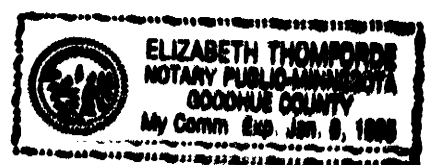 ELIZABETH THOMFORDE
NOTARY PUBLIC-MINNESOTA
GOODHUE COUNTY
My Comm Exp. Jan.